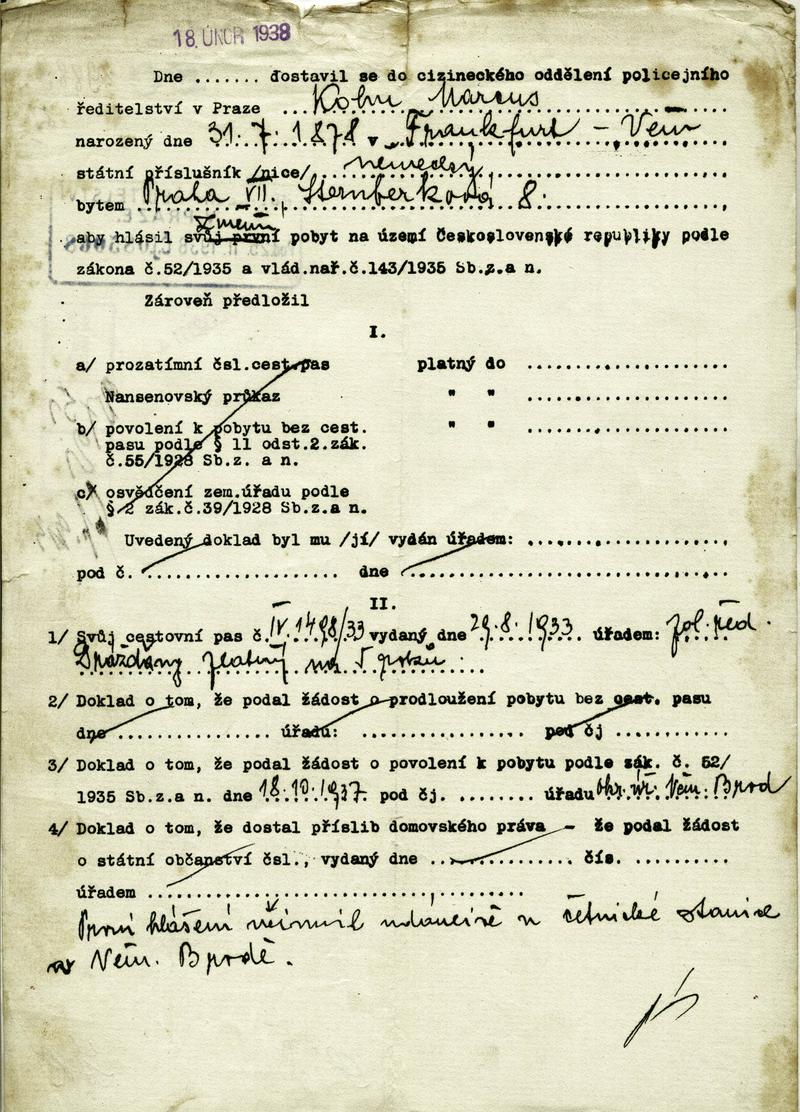 18. ÚNOR 1938
Dne ....... dostavil se do cizineckého oddělení policejního
ředitelství v Praze ... Kohn Marcus
narozený dne 31. 7. 1878 v Frankfurt - Něm
státní příslušník /nice/ německý
bytem Praha VII., Sternberková 8.
změnu
aby hlásil svůj první pobyt na území Československé republiky podle
zákona č.52/1935 a vlád.nař.č.143/1935 Sb.z.a n.
Zároveň předložil
I.
a/ prozatímní čsl.cest.pas platný do ....................
Nansenovský průkaz " " ....................
b/ povolení k pobytu bez cest. " " ....................
pasu podle § 11 odst.2.zák.
č.55/1928 Sb.z. a n.
c/ osvědčení zem.úřadu podle
§ 2 zák.č.39/1928 Sb.z.a n.
Uvedený doklad byl mu /jí/ vydán úřadem: ....................
pod č. .................... dne ..............................
II.
1/ Svůj cestovní pas č. IV 1498/33 vydaný dne 29.8.1933 úřadem: pol. řed.
Drážďany platný na 5 roků
2/ Doklad o tom, že podal žádost o prodloužení pobytu bez cest. pasu
dne ................ úřadu: ................ pod čj ............
3/ Doklad o tom, že podal žádost o povolení k pobytu podle zák. č. 52/
1935 Sb.z.a n. dne 18.10.1937 pod čj. ........ úřadu okr. úř. Něm. Brod
4/ Doklad o tom, že dostal příslib domovského práva - že podal žádost
o státní občanství čsl., vydaný dne .............. čís. ..........
úřadem ........................................
První hlášení učinil u četnické stanice
v Něm. Brodě.